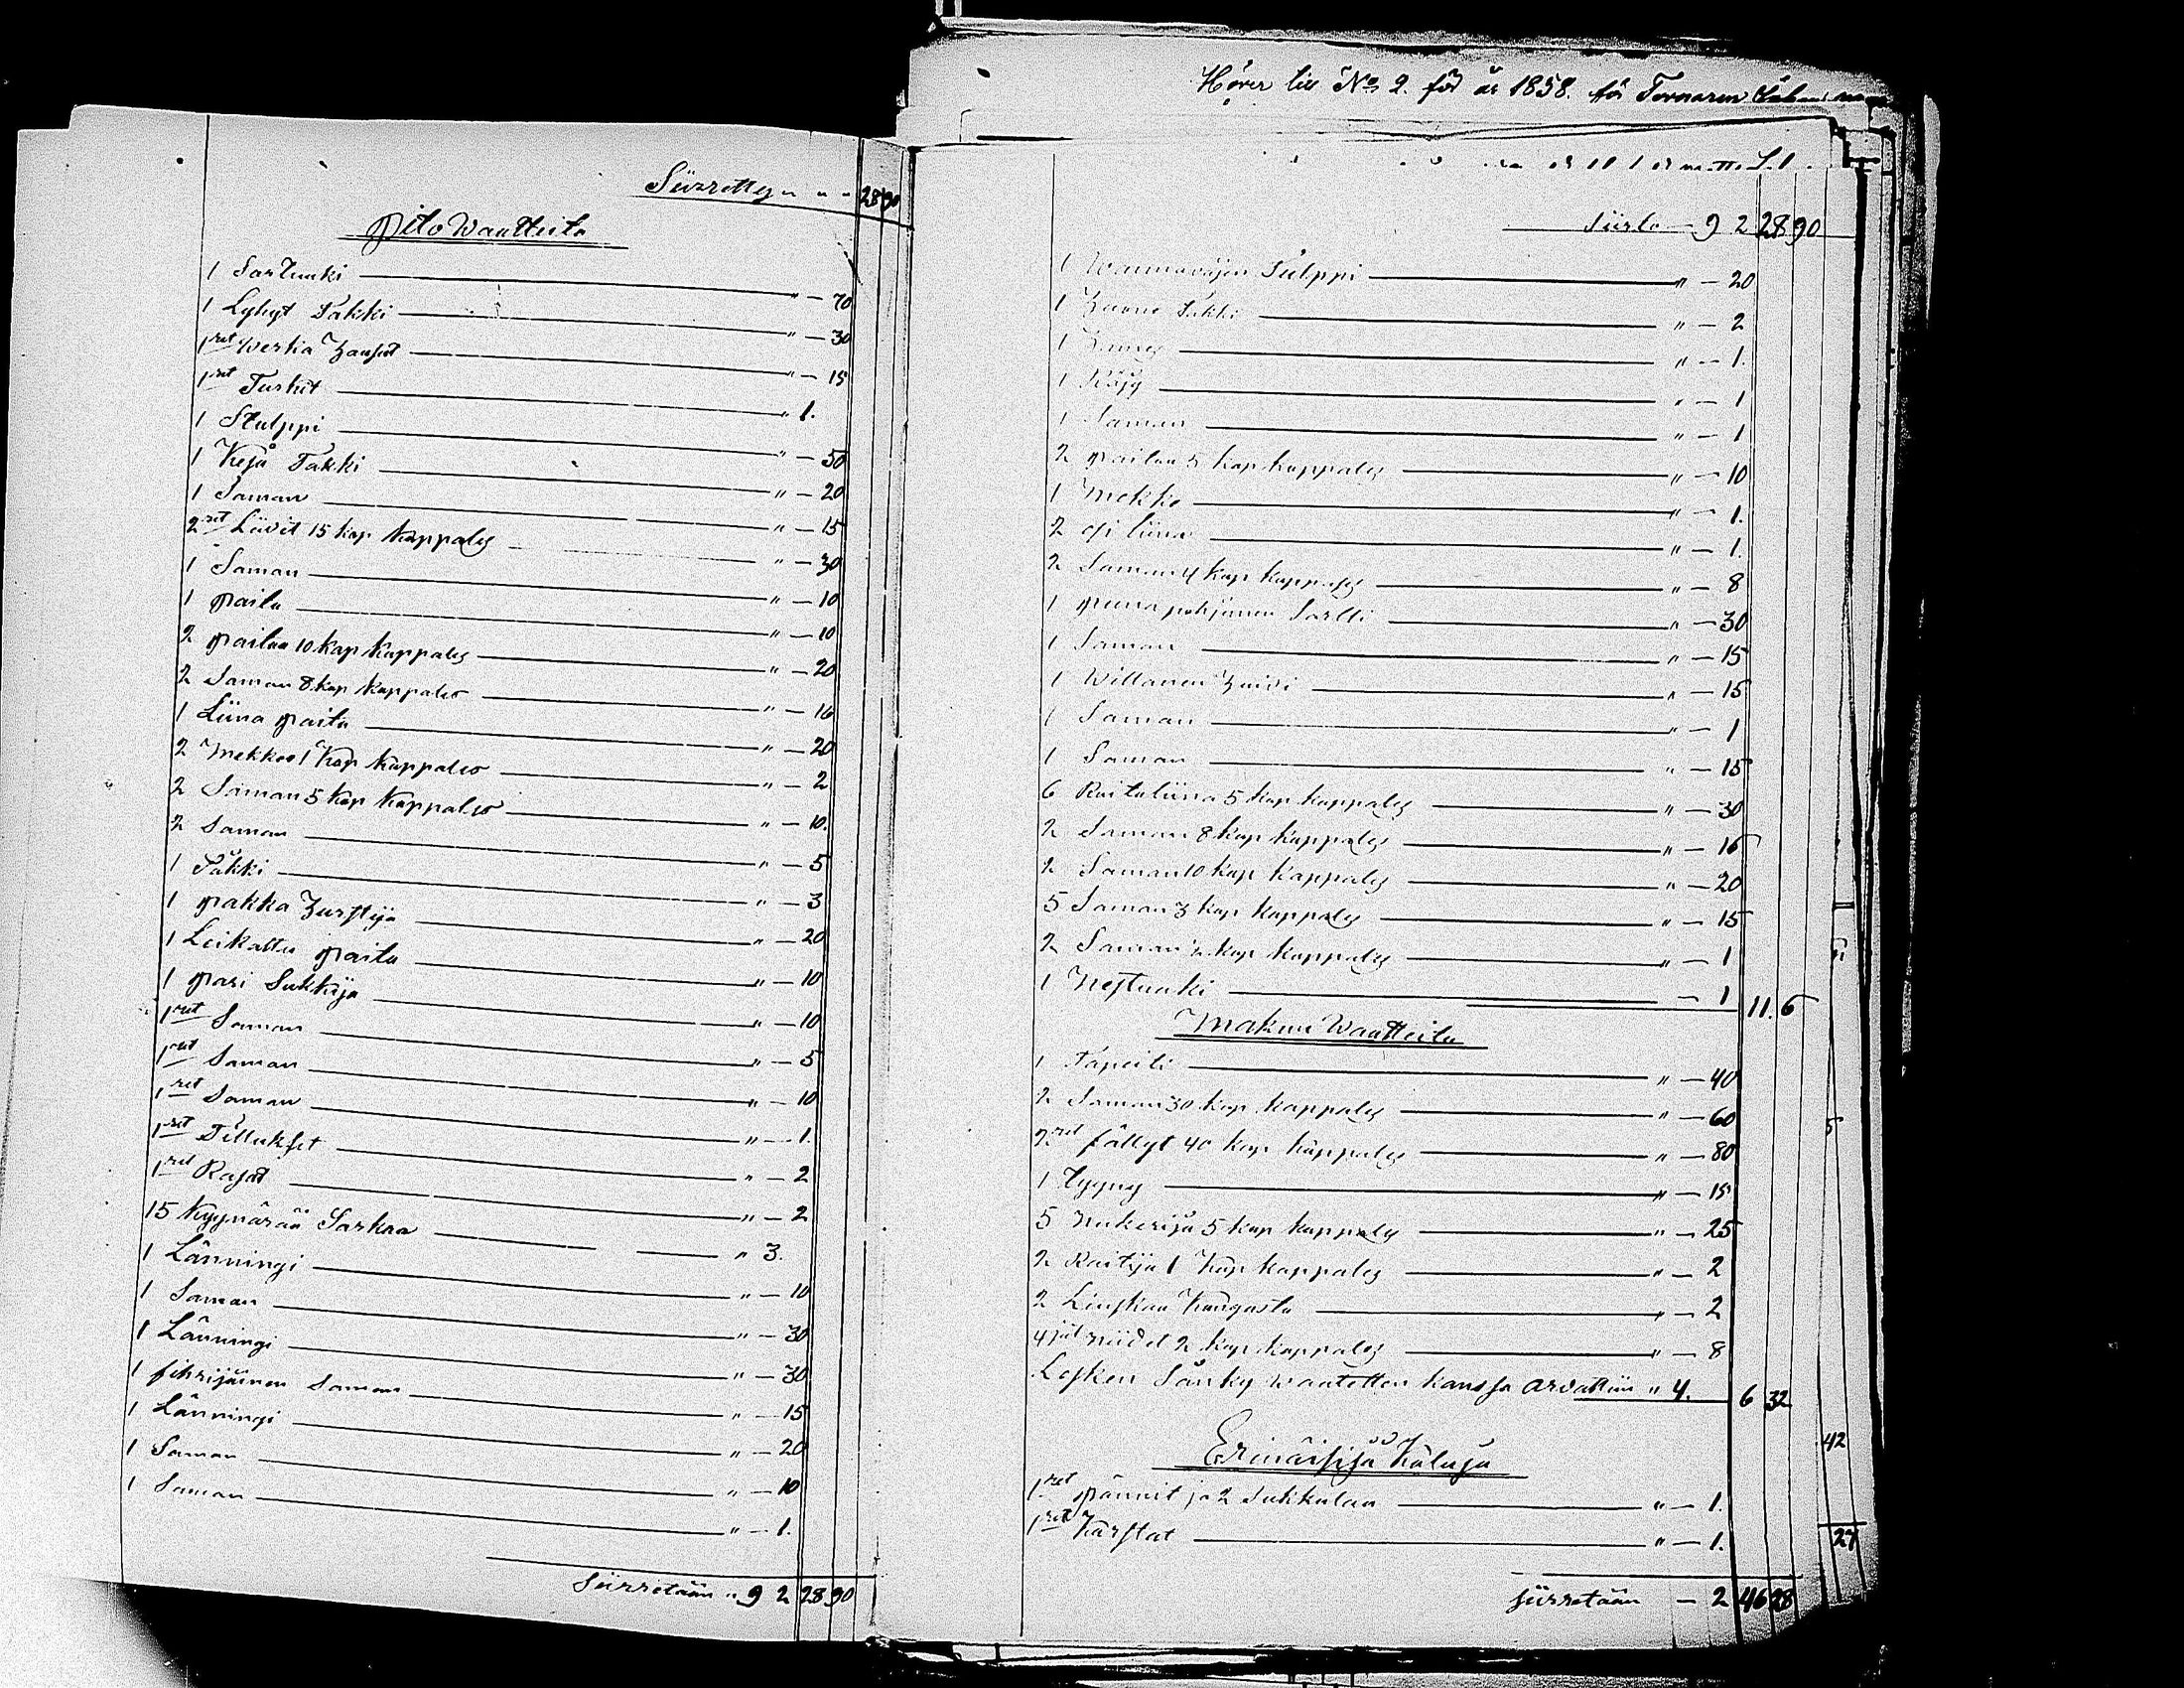 Siirretty " " " 28 90
pito Waatteita
1 Sortuuki " — 70
1 Lyhyt Takki " — 30
1 ret Werka Housut " — 15
1 ret Turkit " 1.
1 Stulppi " — 50
1 Kesä Takki " — 20
1 Saman " — 15
2 ret Liivit 15 kop kappales " — 30
1 Saman " — 10
1 paita " — 10
2 paitaa 10 kap kappales " — 20
2 Saman 8 kap kappales " — 16
1 Liina paita " — 20
2 mekkoo 1 kop kappales " — 2
2 Saman 5 kop kappales " — 10.
2 Saman " — 5
1 Takki " — 3
1 pakka Hurstija " — 20
1 Leikattu paita " — 10
1 pari Sukkija " — 10
1 ret Saman " — 5
1 ret Saman " — 10
1 ret Saman " — 1.
1 ret Tillukset " — 2
1 ret Rajat " — 2
15 kyynärää Sarkaa " 3.
1 Länningi " — 10
1 Saman " — 30
1 Länningi " — 30
1 Saman " — 15
1 Länningi " — 20
1 Saman " — 10
1 Saman " — 1.
Siirretään " 9 2 28 90
Hörer till No 2. för år 1858. för Tornaren
Siirto — 9 2 28 90
1 Tulppi " — 20
1 Takki " — 2
1 " — 1.
1 Röijy " — 1
1 Saman " — 1
2 paitaa 5 kop kappales " — 10
1 mekko " — 1.
2 liina " — 1.
2 Saman 4 kop kappales " — 8
1 puna pohjanen Sortti " — 30
1 Saman " — 15
1 Willanen Huivi " — 15
1 Saman " — 1
1 Saman " — 15
6 Raitaliina 5 kop kappales " — 30
2 Saman 8 kop kappales " — 16
2 Saman 10 kop kappales " — 20
5 Saman 3 kop kappales " — 15
2 Saman ½ kop kappales " — 1
1 Nestuuki — 1 11. 6
Makuu Waatteita
1 Täpeiti " — 40
2 Saman 30 kop kappales " — 60
2 ret fällyt 40 kop kappales " — 80
1 Tyyny " — 15
5 5 kop kappales " — 25
2 Raitija 1 kop kappales " — 2
2 Kangasta " — 2
4 niidet 2 kop kappales " — 8
Lesken Sänky waatetten kanssa arvattiin " 4. 6 32
42
Erinäisijä Kaluja
1 ret pännit ja 2 Sukkulaa " — 1.
1 ret Karstat " — 1.
27
siirretään — 2 46 28